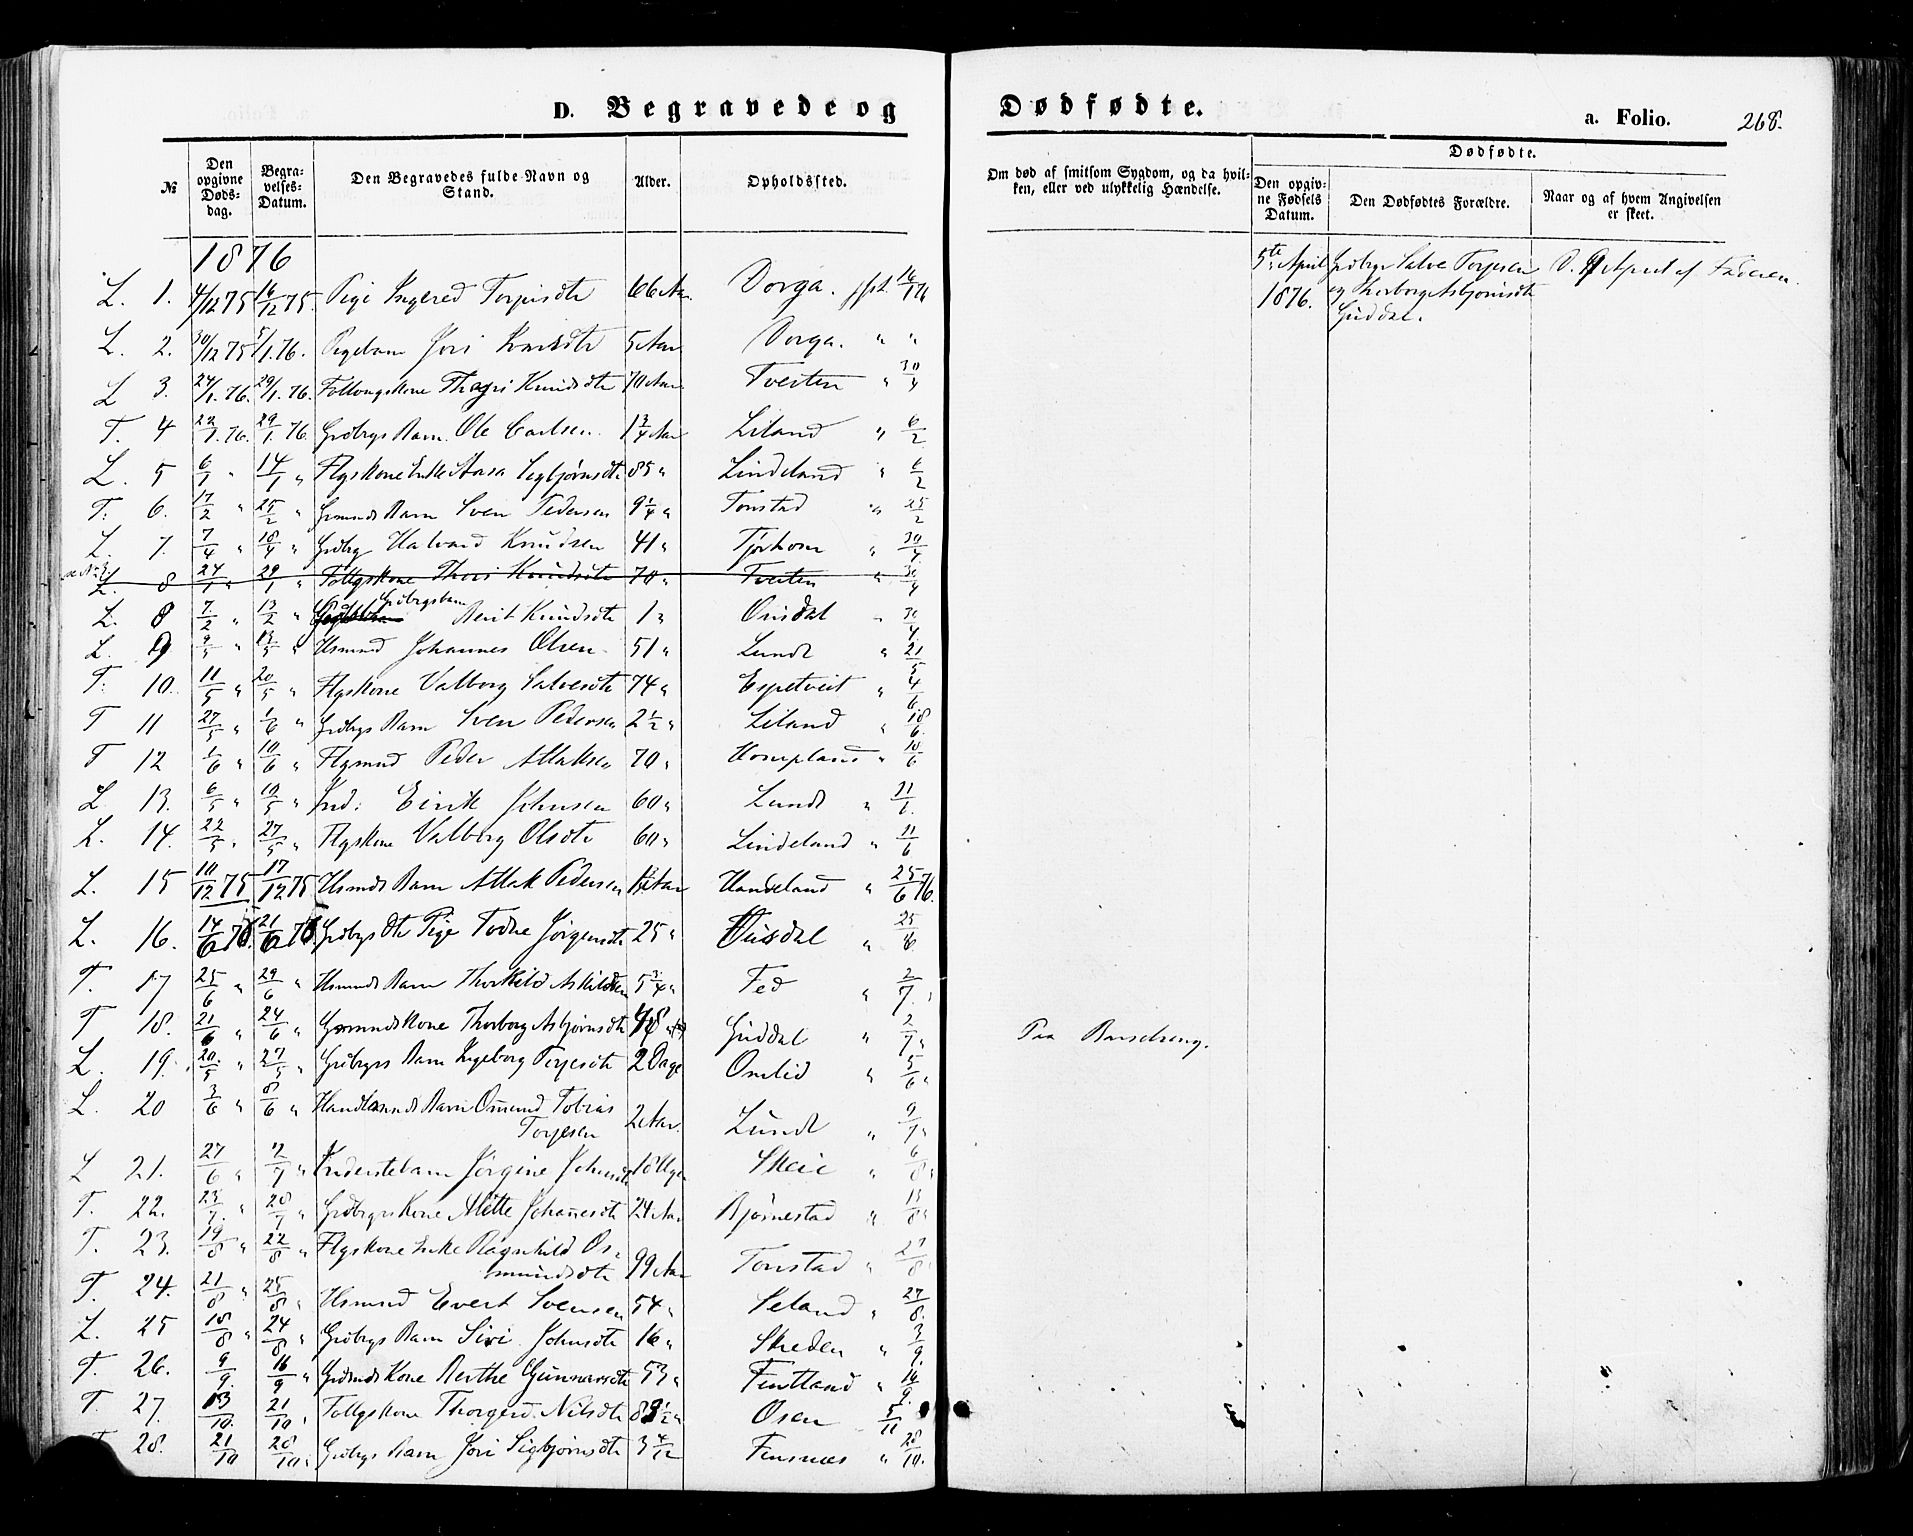 D. Begravede og Dødfødte.
a. Folio. 268.
№
Den opgivne Døds-dag.
Begra-velses-Datum.
Den Begravedes fulde Navn og Stand.
Alder.
Opholdssted.
Om død af smitsom Sygdom, og da hvil-ken, eller ved ulykkelig Hændelse.
Dødfødte.
Den opgiv-ne Fødsels Datum.
Den Dødfødtes Forældre.
Naar og af hvem Angivelsen er skeet.
1876
L. 1. 4/12 75 16/12 75. Pige Ingered Torjusdtr 66 Aar. Dorga. 16/1 76
5te April 1876. Grdbrgr Salve Torjesen og Thorborg Asbjørnsdtr Guddal. D. 9 April af Faderen.
L. 2. 30/12 75 5/1. 76. Pigebarn Jori 5 Aar Dorga. " "
L 3. 24/1. 76. 29/1. 76. Thori Knudsdtr 70 Aar Tveiten " 30/4
T. 4 22/1. 76. 29/1. 76. Grdbrgs Barn. Ole Carlsen. 1 3/4 Aar Liland " 6/2
L. 5 6/1 " 14/1 " Flgskone Enke Aasa Sigbjørnsdtr 85 " Lindeland " 6/2
T. 6. 17/2 " 25/2 " Grmnds Barn Sven Pedersen 9 1/4 " Tonstad " 25/2
L. 7. 7/4 " 18/4 " Grdbrg Halvard Knudsen 41 " Tjørhom " 30/4
L. 8 24/1 " 29/1 " Follgskone Thori Knudsdtr 70 " Tveiten " 30/4
L. 8 7/2 " 13/2 " Grdbrgsbarn Berit Knudsdtr 1 " Ousdal " 30/4
L. 9 9/5 " 13/5 " Husmnd Johannes Olsen 51 " Lunde " 21/5
T. 10. 11/5 " 20/5 " Flgskone Valborg Salvesdtr 74 " Espetveit " 4/6
T 11 27/5 " 1/6 " Grdbrgs Barn Sven Pedersen 2 1/2 " Liland " 18/6
T 12 1/6 " 10/6 " Flgmnd Peder Atlaksen 70 " Hompland " 10/6
L 13. 6/5 " 10/5 " Ind: Eirik Johnsen 60 " Lunde " 11/6
L. 14. 22/5 " 27/5 " Flgskone Valborg Olsdtr 60 " Lindeland " 11/6
L. 15 10/12 75 17/12 75 Husmnds Barn Atlak Pedersen Aar Haugeland " 25/6 76.
L. 16. 14/6 76. 21/6 76. Grdbrgs Dtr Pige Todne Jörgensdtr 25 " Ousdal " 25/6
T. 17 25/6 " 29/6 " Husmnds Barn Thorkild Askildsen 5 3/4 " Fed " 2/7.
T. 18. 21/6 " 24/6 " Grmnds kone Thorborg Asbjørnsdtr 48 Guddal " 2/7 " Paa Barselseng.
L. 19. 20/5 " 27/5 " Grdbrgrs Barn Ingeborg Torjesdtr 2 Dage Omlid " 5/6 "
L. 20 3/6 " 8/6 " Handlmnds Barn Osmund Tobias
Torjesen 2 Aar. Lunde " 9/7 "
L 21. 27/6 " 2/7 " Inderstebarn Jørgine Johnsdtr 18 Uger Skeie " 6/8 "
T. 22. 23/7. " 28/7 " Grdbrgrs Kone Mette Johannesdtr 24 Aar Bjørnestad " 13/8 "
T. 23. 19/8 " 22/8 " Flgskone Enke Ragnhild Os-
mundsdtr 99 Aar Tonstad " 27/8 "
T. 24. 21/8 " 25/8 " Husmnd Evert Svensen 54 " Seland " 27/8.
L. 25 18/8 " 24/8 " Grdbrgs Barn Siri Johnsdtr 16 " Skreden " 3/9.
T. 26. 9/9. 16/9 " Grdmnds Kone Berthe Gunnarsdtr 53 " Fintland " 16/9.
T. 27. 13/10. 21/10 " Follgskone Thorgerd Nilsdtr 83 1/2 " Osen 5/11
T. 28. 21/10 28/10 " Grdbrgs Barn Jori Sigbjørnsdtr 3 4/12 Finsnæs " 28/10.